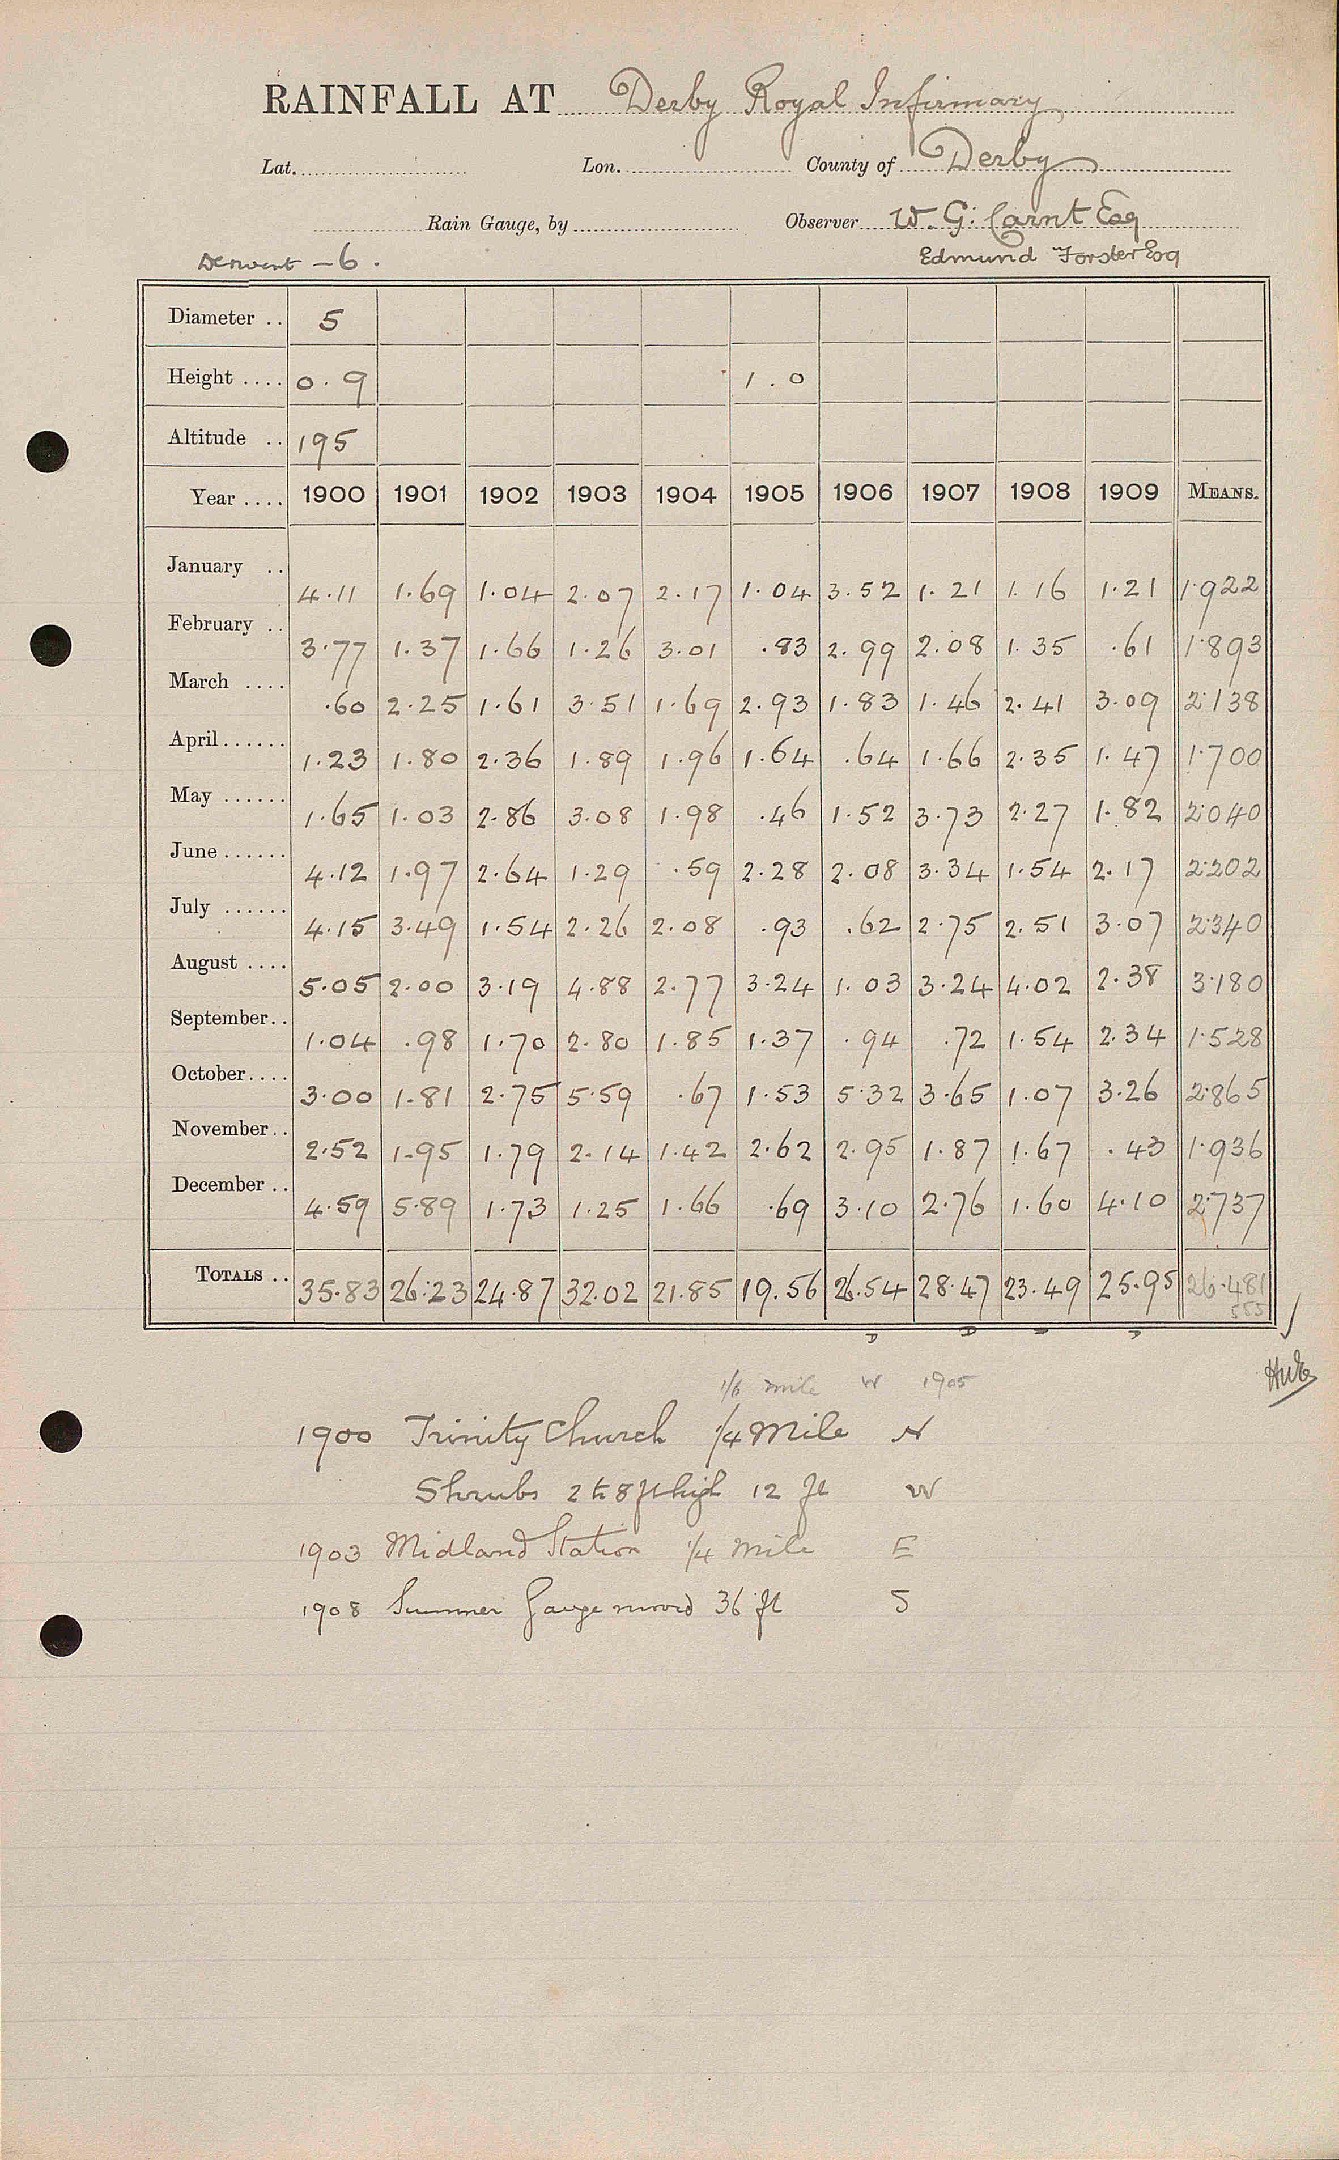 RAINFALL AT Derby Royal Infirmary
Lat. Lon. County of Derby
Rain Gauge, by Observer W. G. Carnt Esq
Derwent – 6. Edmund Forster Esq
Diameter .. 5
Height .... 0.9 1.0
Altitude .. 195
Year .... 1900 1901 1902 1903 1904 1905 1906 1907 1908 1909 MEANS.
January .. 4.11 1.69 1.04 2.07 2.17 1.04 3.52 1.21 1.16 1.21 1.922
February .. 3.77 1.37 1.66 1.26 3.01 .83 2.99 2.08 1.35 .61 1.893
March .... .60 2.25 1.61 3.51 1.69 2.93 1.83 1.46 2.41 3.09 2.138
April...... 1.23 1.80 2.36 1.89 1.96 1.64 .64 1.66 2.35 1.47 1.700
May ...... 1.65 1.03 2.86 3.08 1.98 .46 1.52 3.73 2.27 1.82 2.040
June ...... 4.12 1.97 2.64 1.29 .59 2.28 2.08 3.34 1.54 2.17 2.202
July ...... 4.15 3.49 1.54 2.26 2.08 .93 .62 2.75 2.51 3.07 2.340
August .... 5.05 2.00 3.19 4.88 2.77 3.24 1.03 3.24 4.02 2.38 3.180
September.. 1.04 .98 1.70 2.80 1.85 1.37 .94 .72 1.54 2.34 1.528
October.... 3.00 1.81 2.75 5.59 .67 1.53 5.32 3.65 1.07 3.26 2.865
November.. 2.52 1.95 1.79 2.14 1.42 2.62 2.95 1.87 1.67 .43 1.936
December .. 4.59 5.89 1.73 1.25 1.66 .69 3.10 2.76 1.60 4.10 2.737
TOTALS .. 35.83 26.23 24.87 32.02 21.85 19.56 26.54 28.47 23.49 25.95 26.481
555
1/6 mile W 1905
1900 Trinity Church 1/4 Mile N
Shrubs 2 to 8 ft high 12 ft W
1903 Midland Station 1/4 mile E
1908 Summer Gauge moved 36 ft S